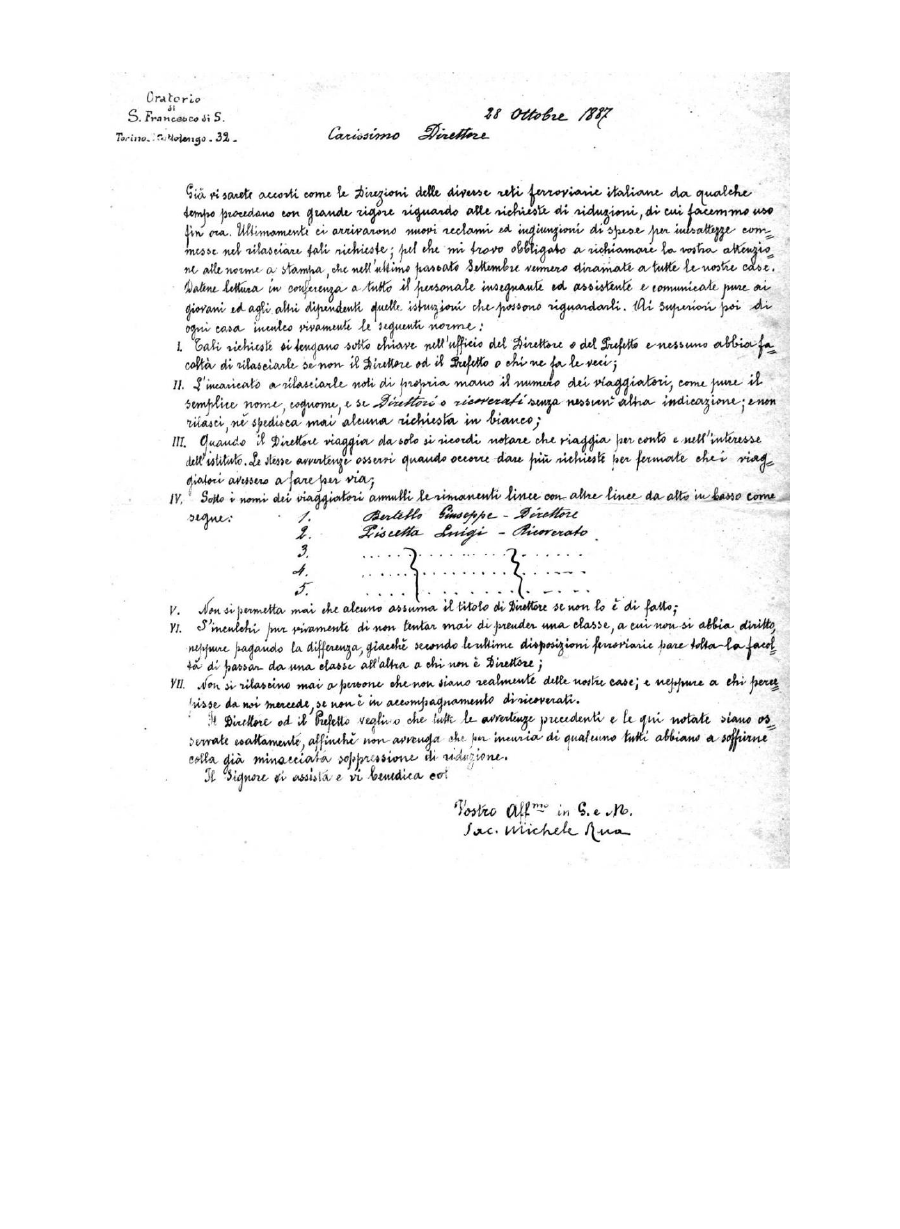 Oratorio
di
S. Francesco di S.
Torino. Cottolengo - 32 -
28 Ottobre 1887
Carissimo Direttore
Già vi sarete accorti come le Direzioni delle diverse reti ferroviarie italiane da qualche
tempo procedano con grande rigore riguardo alle richieste di riduzioni, di cui facemmo uso
fin ora. Ultimamente ci arrivarono nuovi reclami ed ingiunzioni di spese per inesattezze com=
messe nel rilasciare tali richieste; pel che mi trovo obbligato a richiamare la vostra attenzio=
ne alle norme a stampa, che nell'ultimo passato Settembre vennero diramate a tutte le nostre case.
Datene lettura in conferenza a tutto il personale insegnante ed assistente e comunicate pure ai
giovani ed agli altri dipendenti quelle istruzioni che possono riguardarli. Ai Superiori poi di
ogni casa inculco vivamente le seguenti norme:
I. Tali richieste si tengano sotto chiave nell'ufficio del Direttore o del Prefetto e nessuno abbia fa=
coltà di rilasciarle se non il Direttore od il Prefetto o chi ne fa le veci;
II. L'incaricato a rilasciarle noti di propria mano il numero dei viaggiatori, come pure il
semplice nome, cognome, e se Direttori o ricoverati senza nessun' altra indicazione; e non
rilasci, nè spedisca mai alcuna richiesta in bianco;
III. Quando il Direttore viaggia da solo si ricordi notare che viaggia per conto e nell'interesse
dell'istituto. Le stesse avvertenze osservi quando occorre dare più richieste per fermate che i viag=
giatori avessero a fare per via;
IV. Sotto i nomi dei viaggiatori annulli le rimanenti linee con altre linee da alto in basso come
segue: 1. Bertello Giuseppe - Direttore
2. Piscetta Luigi - Ricoverato
3.
4.
5.
V. Non si permetta mai che alcuno assuma il titolo di Direttore se non lo è di fatto;
VI. S'inculchi pur vivamente di non tentar mai di prender una classe, a cui non si abbia diritto,
neppure pagando la differenza, giacchè secondo le ultime disposizioni ferroviarie pare tolta la facol=
tà di passar da una classe all'altra a chi non è Direttore;
VII. Non si rilascino mai a persone che non siano realmente delle nostre case; e neppure a chi perce=
pisse da noi mercede, se non è in accompagnamento di ricoverati.
Il Direttore od il Prefetto veglino che tutte le avvertenze precedenti e le qui notate siano os=
servate esattamente, affinchè non avvenga che per incuria di qualcuno tutti abbiano a soffrirne
colla già minacciata soppressione di riduzione.
Il Signore vi assista e vi benedica col
Vostro Aff.mo in G. e M.
Sac. Michele Rua